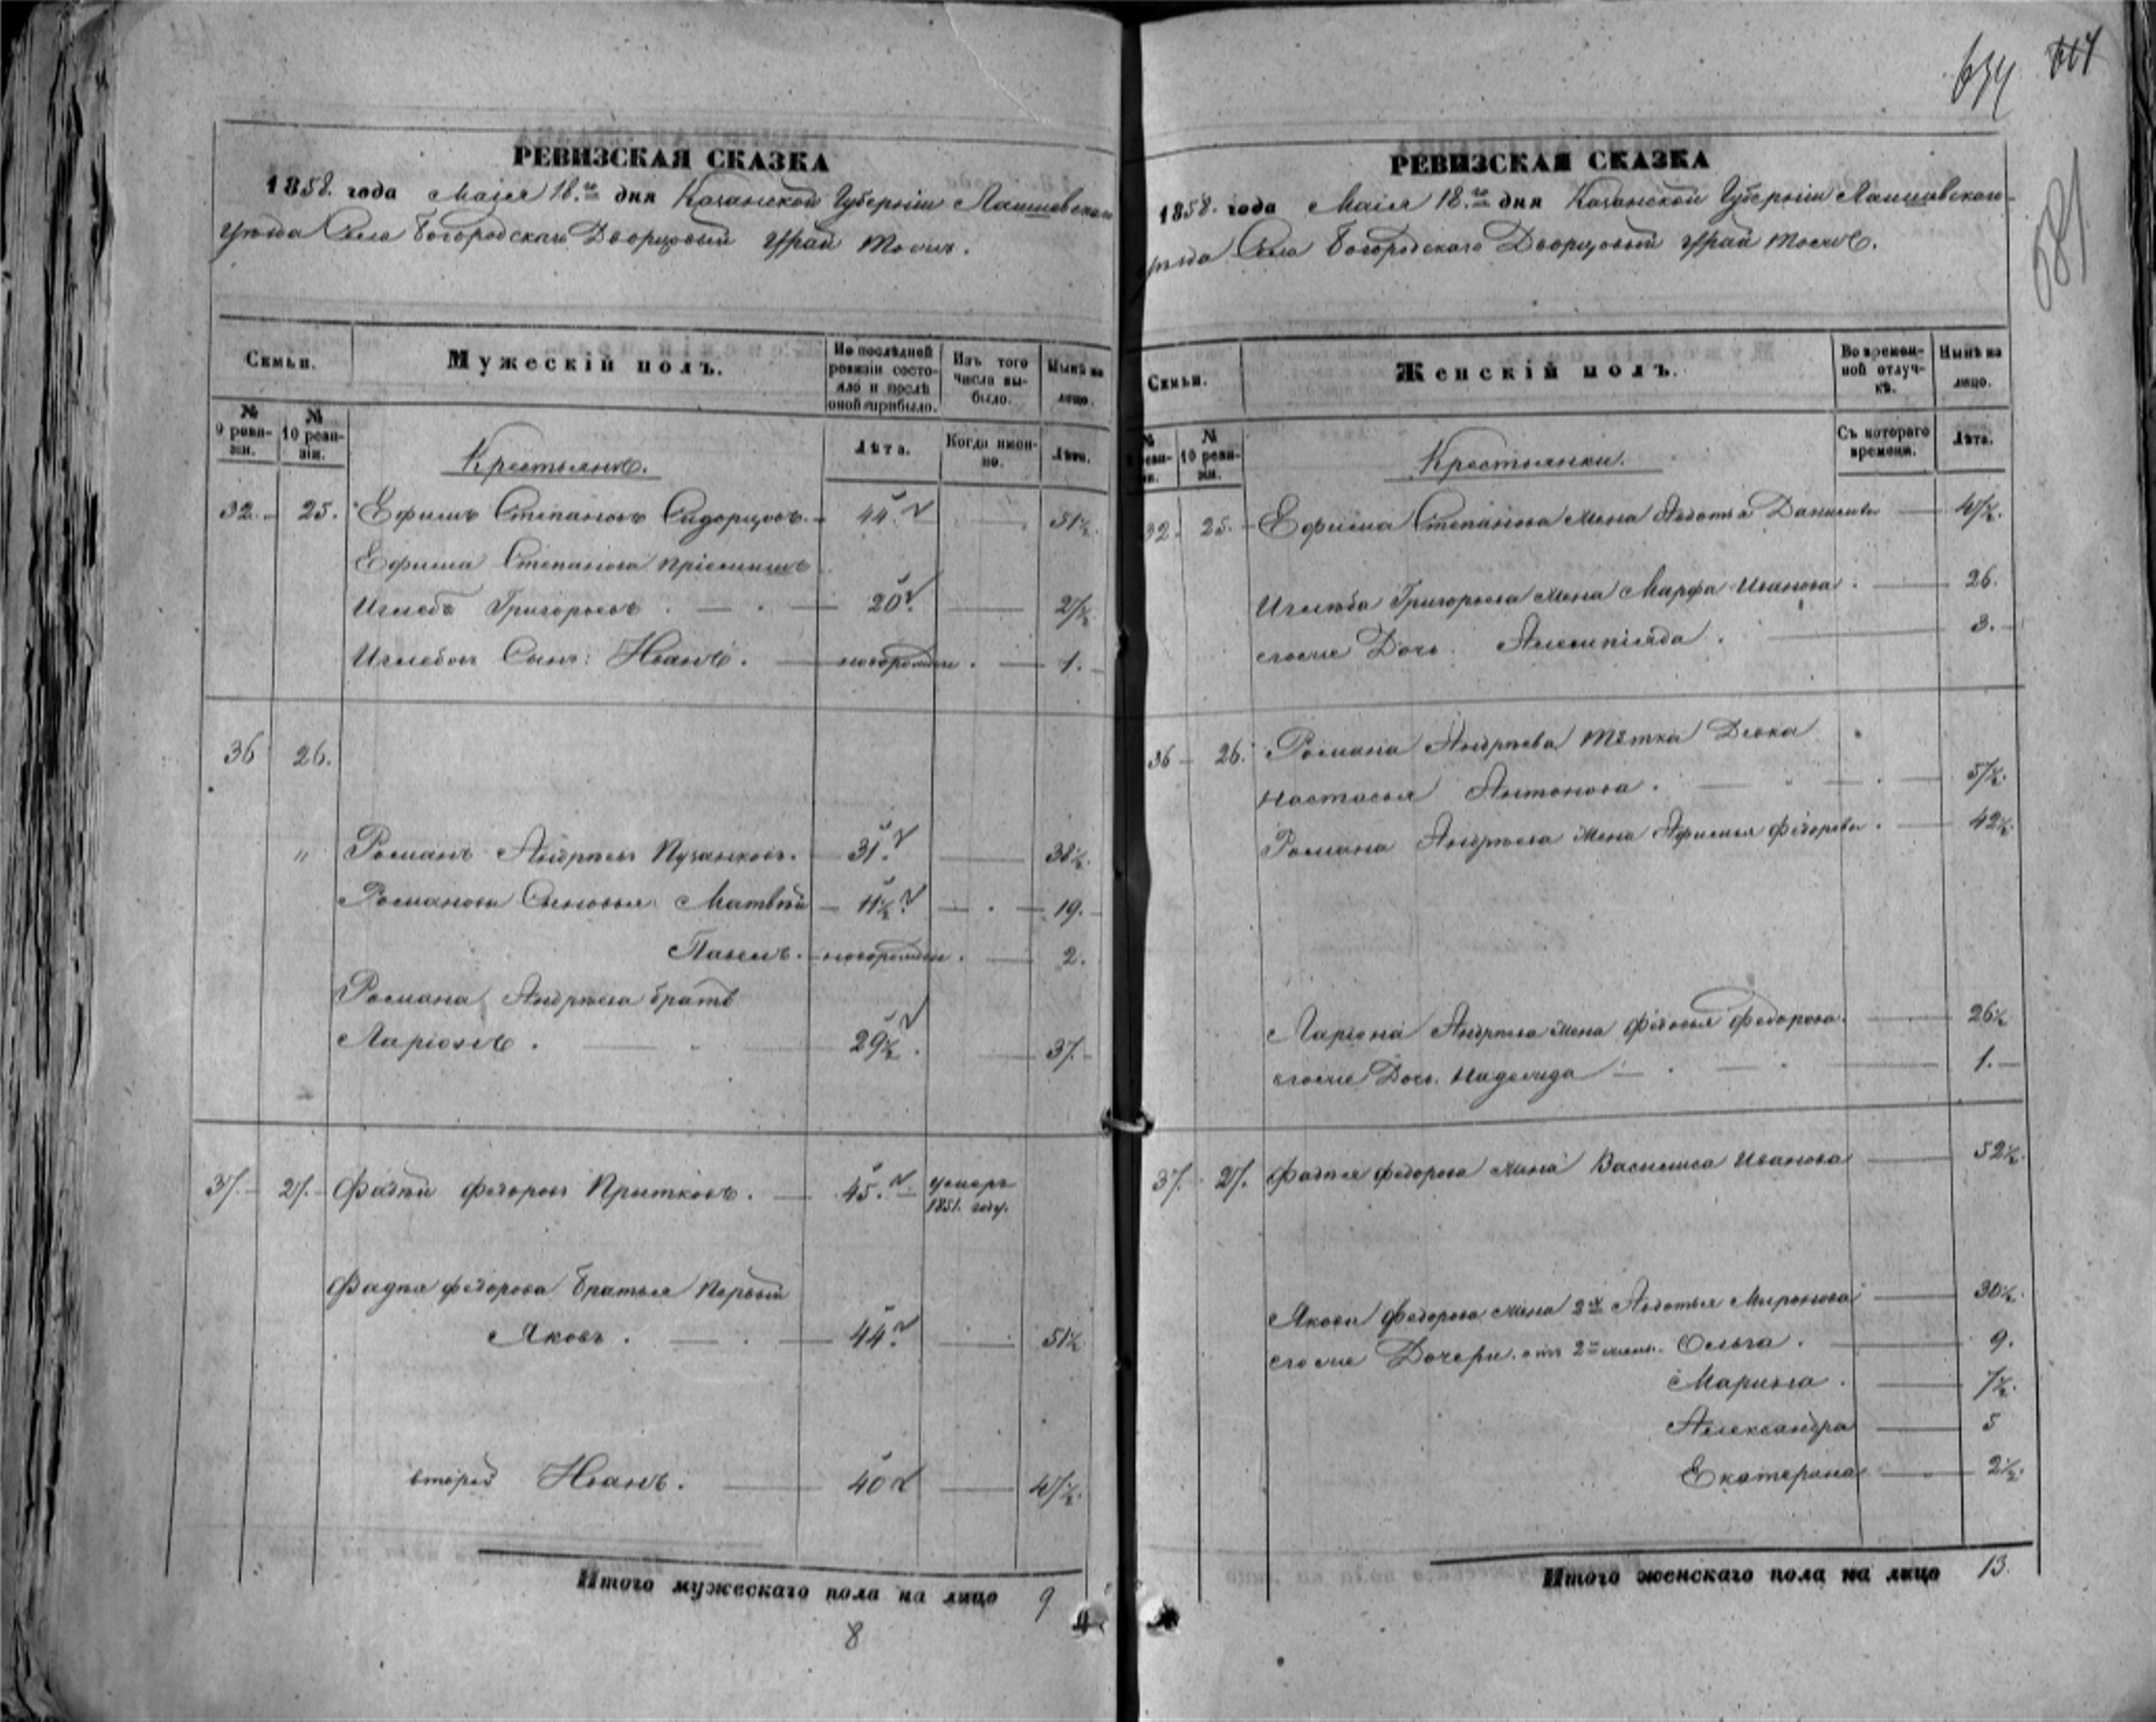 РЕВИЗСКАЯ СКАЗКА
1858. года Маія 18.го дня Казанской Губерніи Лаишевскаго
уѣзда Села Богородскаго Дворцовый
Семьи.
Мужескій полъ.
По послѣдней ревизіи состояло и послѣ оной прибыло.
Изъ того числа выбыло.
Нынѣ на лицо.
№ 9 ревизіи.
№ 10 ревизіи.
Лѣта.
Когда именно.
Лѣта.
Крестьяне.
32. 25. Ефимъ Степановъ Сидорцовъ. 44. 51½
Ефима Степанова пріемышъ
Григорьевъ 20. 27½
Сынъ: Иванъ. новорожден. 1.
36 26.
" Романъ Андреевъ Пузанковъ. 31. 38½.
Романовы Сыновья: Матвѣй 11½ 19.
Павелъ. новорожден. 2.
Романа Андреева братъ
Ларіонъ. 29½. 37.
37. 27. Фадѣй Федоровъ Прытковъ. 45. умеръ 1851. году.
Фадѣя Федорова братья первый
Яковъ. 44. 51½
второй Иванъ. 40 47½.
Итого мужескаго пола на лицо 9
8
684
РЕВИЗСКАЯ СКАЗКА
1858. года Маія 18.го дня Казанской Губерніи Лаишевскаго
уѣзда Села Богородскаго Дворцовый
Семьи.
Женскій полъ.
Во временной отлучкѣ.
Нынѣ на лицо.
№ 10 ревизіи.
Съ котораго времени.
Лѣта.
Крестьянки.
32. 25. Ефима Степанова жена Авдотья Данилова 47½.
Григорьева жена Марфа Иванова. 26.
его же Дочь. 3.
36 26. Романа Андреева тетка Девка
Настасья Антонова. 57½.
Романа Андреева жена Афимья Федорова. 42½.
Ларіона Андреева жена Федосья Федорова. 26½
его же Дочь. Надежда 1.
37. 27. Фадѣя Федорова жена Василиса Иванова 52½.
Якова Федорова жена 2я Авдотья Миронова 30½.
его же Дочери. отъ 2й жены. Ольга. 9.
Марина. 7½.
Александра 5
Екатерина 2½.
Итого женскаго пола на лицо 13.